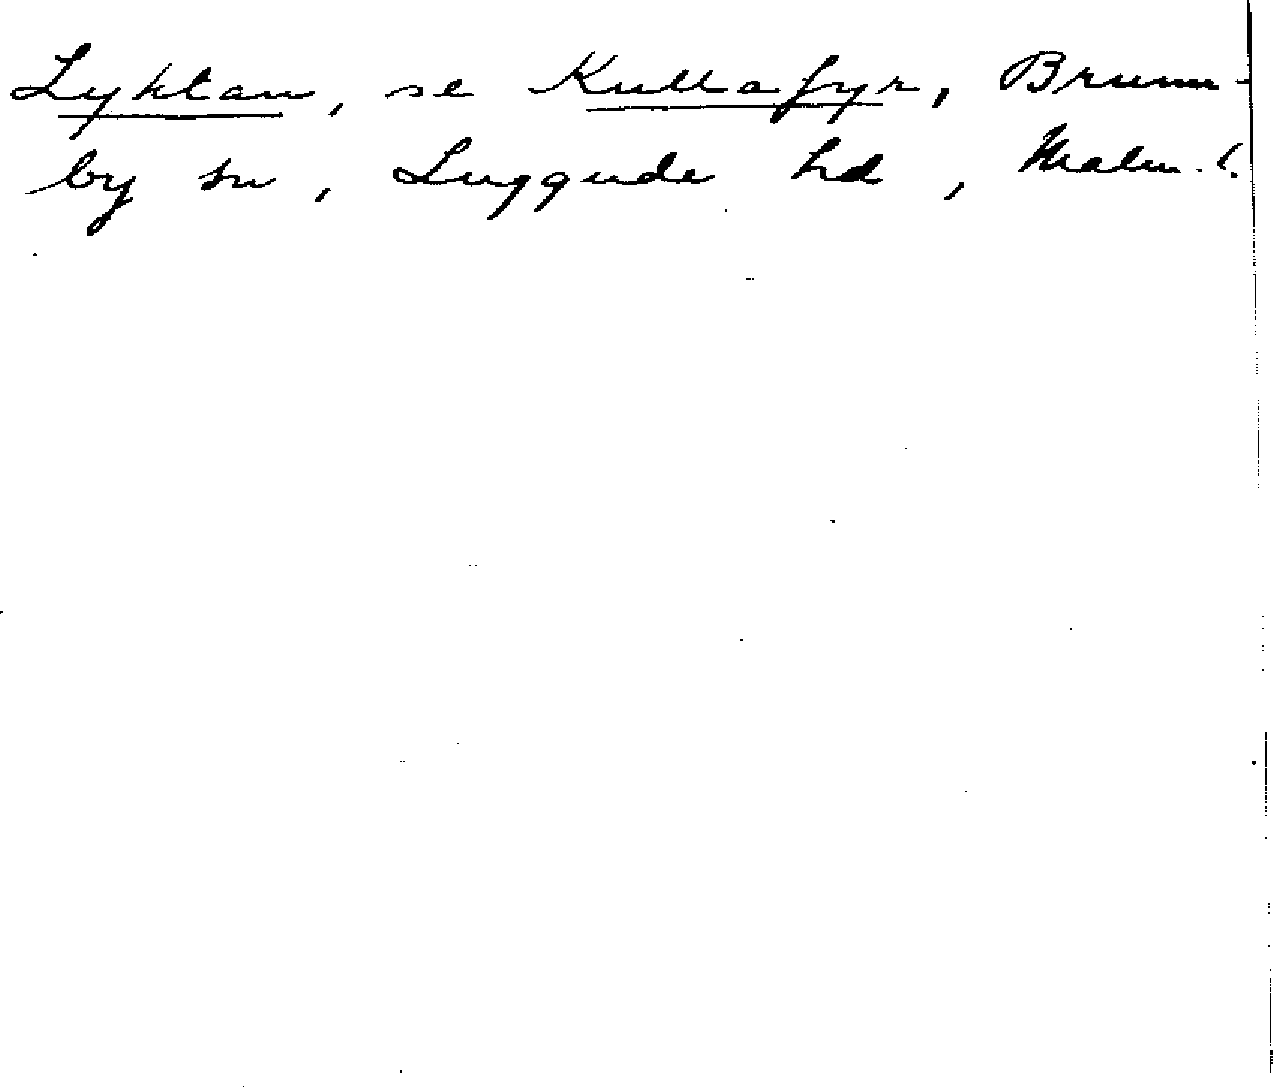 Lyktan, se Kullafyr, Brunn-
by sn, Luggude hd, Malm. l.